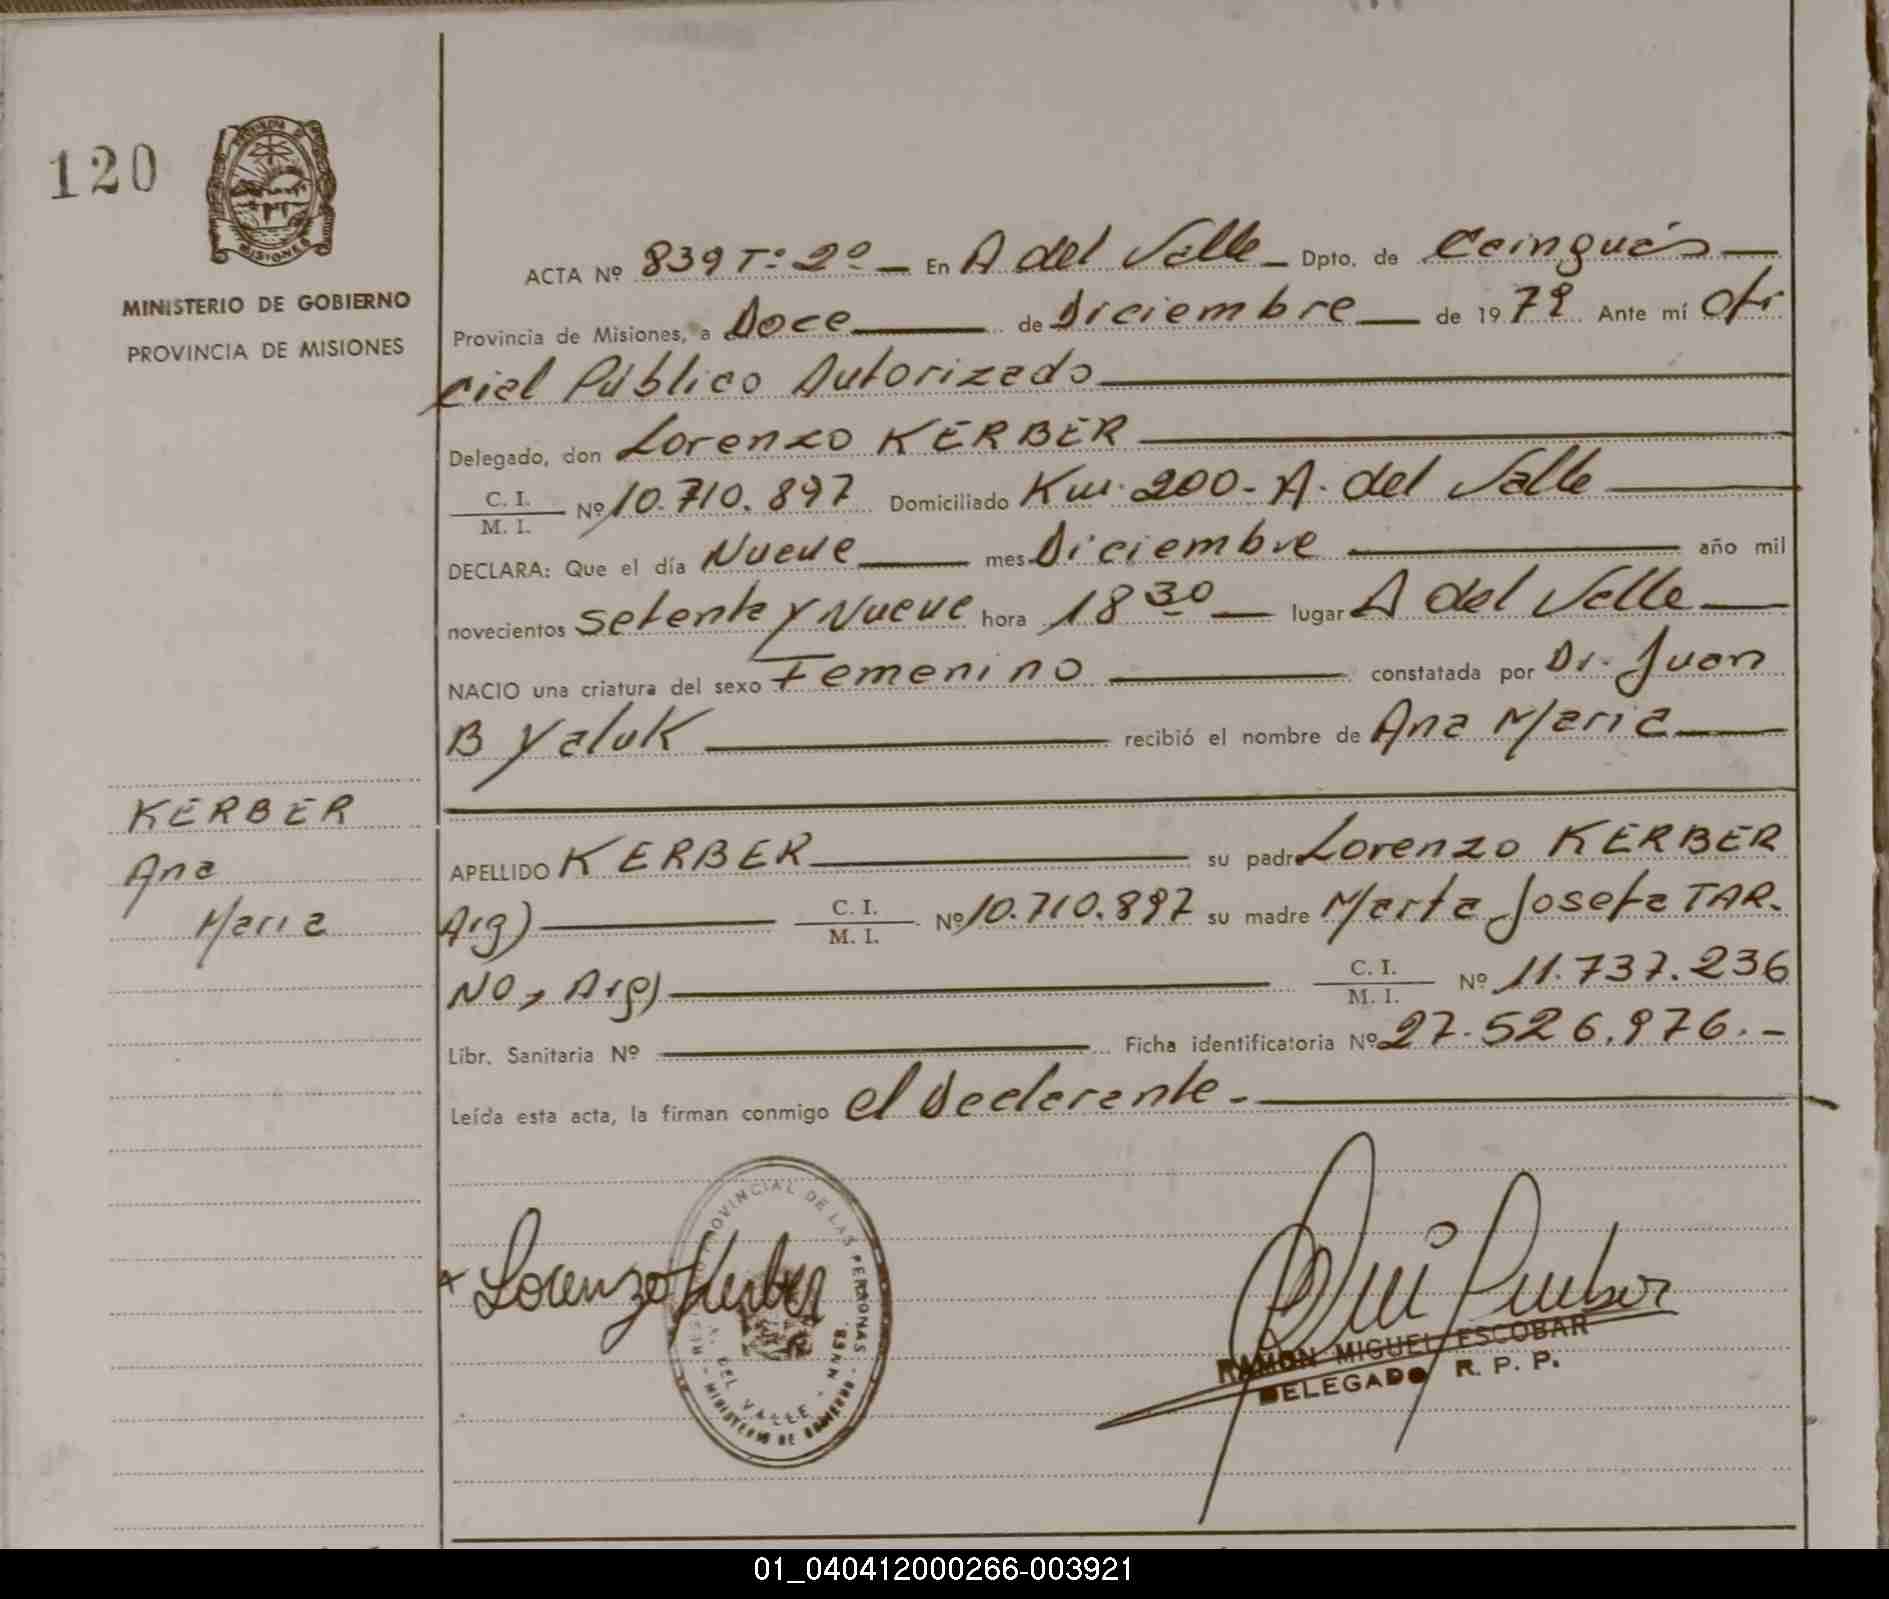 120
MINISTERIO DE GOBIERNO
PROVINCIA DE MISIONES
MISIONES
KERBER
Ana
Maria
ACTA Nº 839 Tº 2º — En A del Valle — Dpto. de Cainguás —
Provincia de Misiones, a Doce — de Diciembre — de 1979 Ante mí Ofi
cial Público Autorizado —
Delegado, don Lorenzo KERBER —
C. I.
M. I. Nº 10.710.897 Domiciliado Km. 200 - A. del Valle —
DECLARA: Que el día Nueve — mes Diciembre — año mil
novecientos setenta y Nueve hora 18 30 — lugar A del Valle —
NACIO una criatura del sexo Femenino — constatada por Dr. Juan
B Yaluk — recibió el nombre de Ana Maria —
APELLIDO KERBER — su padre Lorenzo KERBER
Arg) — C. I.
M. I. Nº 10.710.897 su madre Marta Josefa TAR-
NO, Arg) — C. I.
M. I. Nº 11.737.236
Libr. Sanitaria Nº — Ficha identificatoria Nº 27.526.976.-
Leída esta acta, la firman conmigo el Declarante.- —
Lorenzo Kerber
PROVINCIAL DE LAS PERSONAS
A. DEL VALLE
MINISTERIO DE GOBIERNO
RAMON MIGUEL ESCOBAR
DELEGADO R. P. P.
01_040412000266-003921